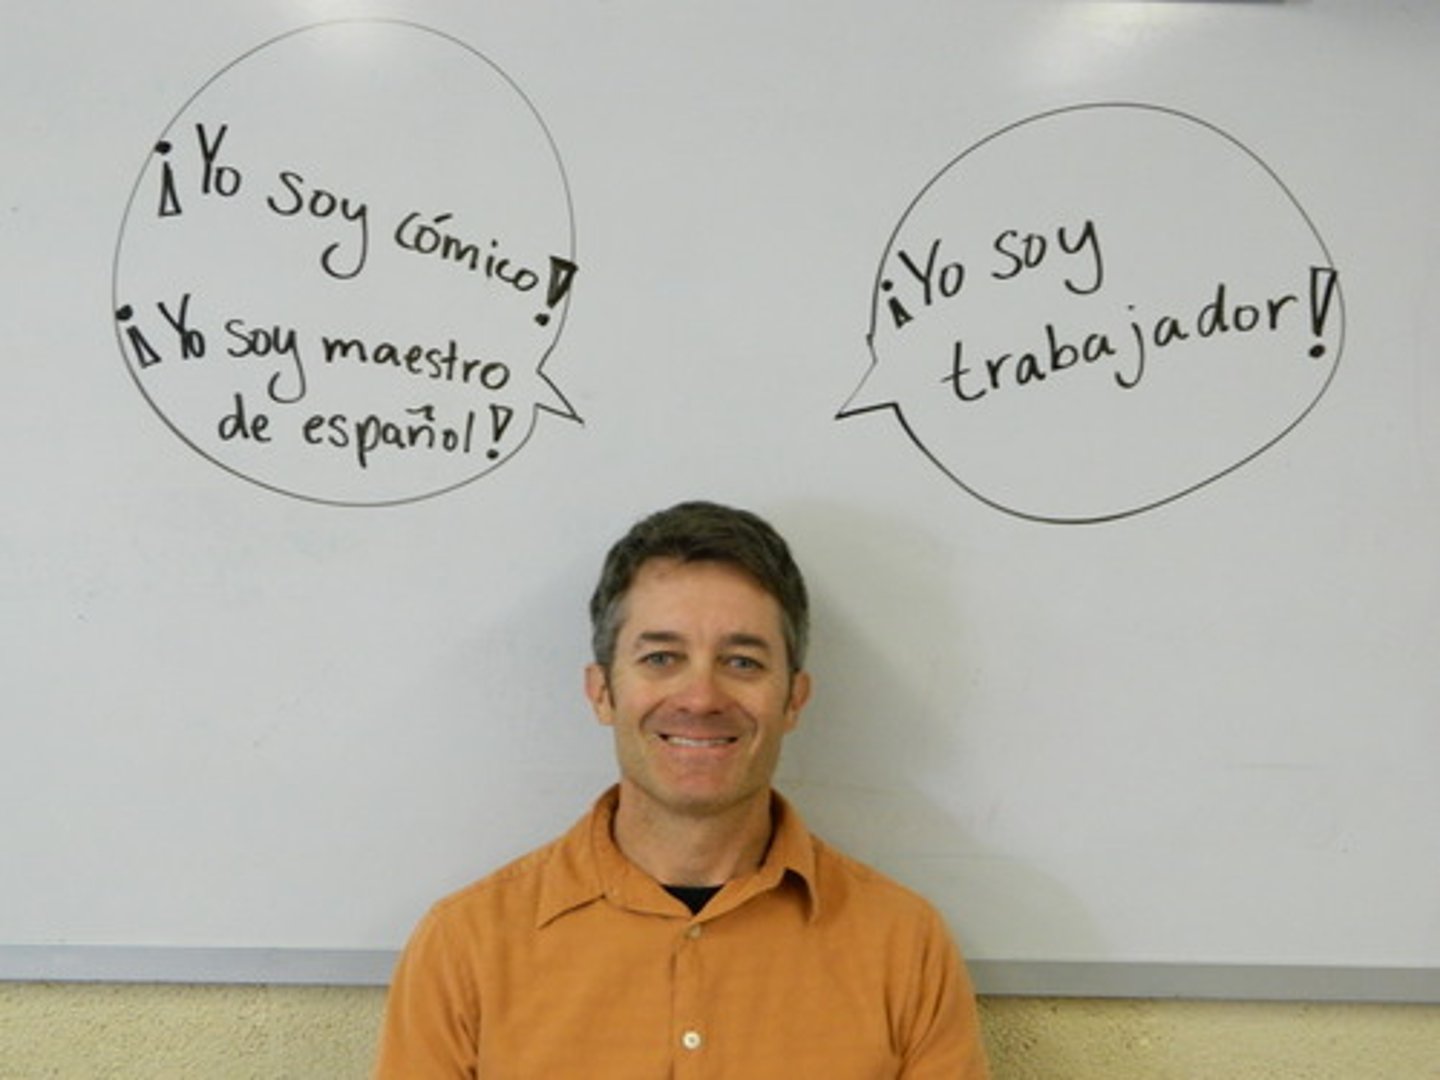 ¡Yo soy cómico!
¡Yo soy maestro
de español!
¡Yo soy
trabajador!